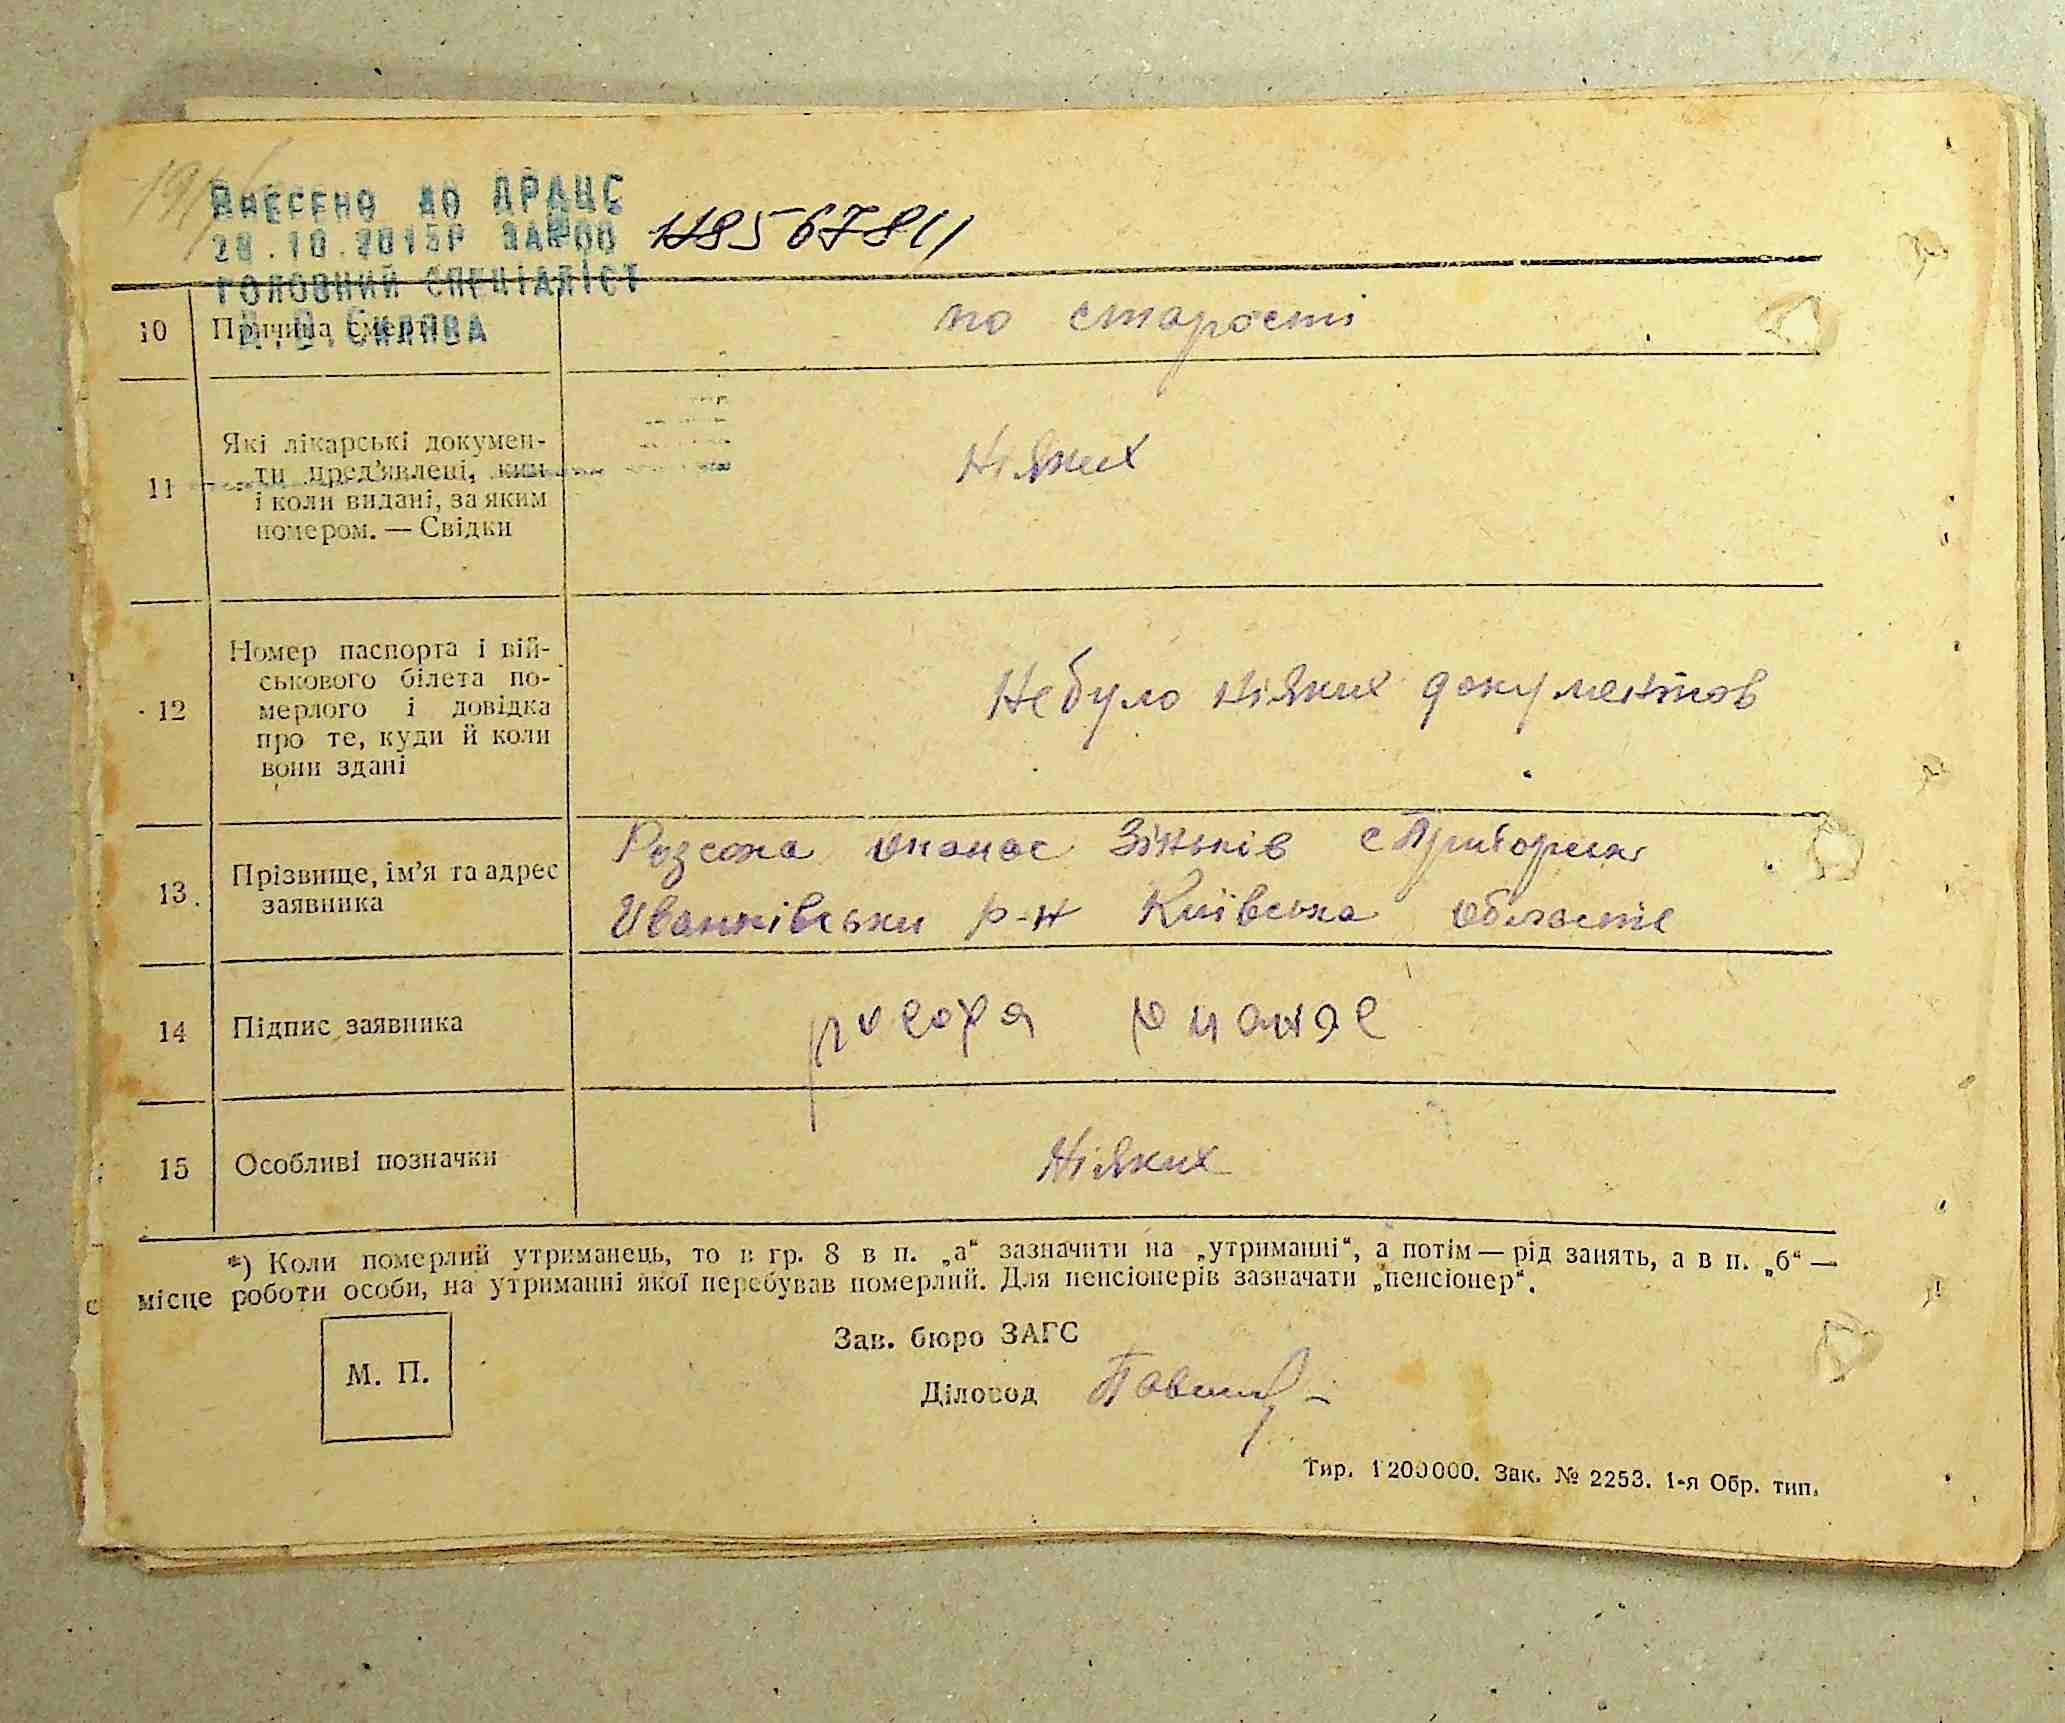 ВНЕСЕНО ДО ДРАЦС
28.10.2015Р ЗАМОО
ГОЛОВНИЙ СПЕЦІАЛІСТ
10 Причина смерті по старості
11 Які лікарські докумен-
ти пред'явлені, ким
і коли видані, за яким
номером. — Свідки
Ніяких
12 Номер паспорта і вій-
ськового білета по-
мерлого і довідка
про те, куди й коли
вони здані
Небуло ніяких документов
13. Прізвище, ім'я та адрес
заявника
Розсоха опанас Зіньків с
Иванківськи р-н Київська область
14 Підпис заявника
росоха опанас
15 Особливі позначки Ніяких
*) Коли померлий утриманець, то в гр. 8 в п. „а“ зазначити на „утриманні“, а потім — рід занять, а в п. „б“ —
місце роботи особи, на утриманні якої перебував померлий. Для пенсіонерів зазначати „пенсіонер“.
М. П.
Зав. бюро ЗАГС
Діловод
Тир. 1200000. Зак. № 2253. 1-я Обр. тип.